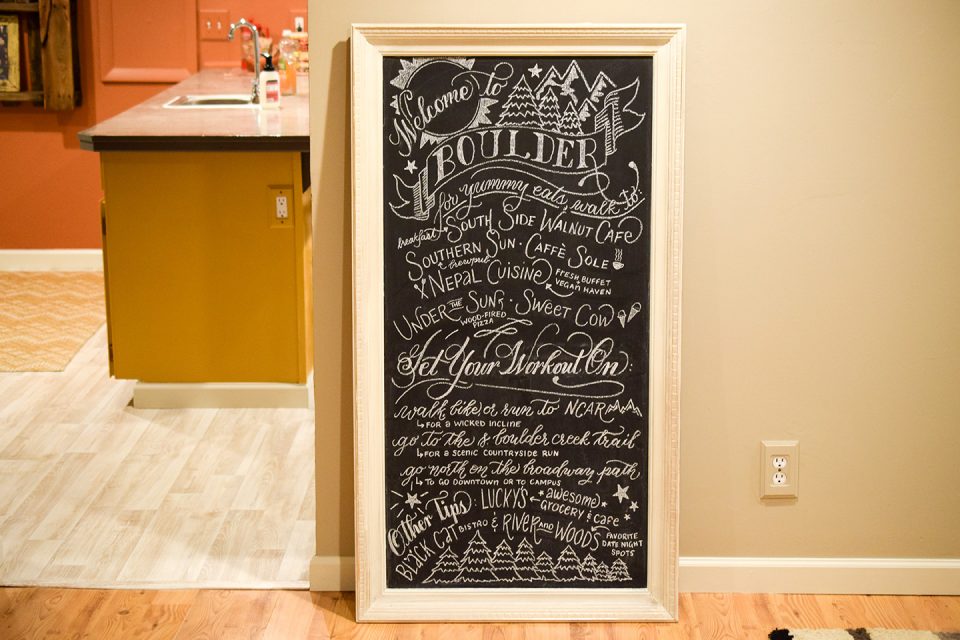 Welcome to
BOULDER
for yummy eats, walk to:
breakfast SOUTH SIDE WALNUT CAFE
SOUTHERN SUN · CAFFÈ SOLE
brewpub
NEPAL CUISINE FRESH BUFFET
VEGAN HAVEN
UNDER THE SUN · SWEET COW
WOOD-FIRED
PIZZA
Get Your Workout On:
walk bike, or run to NCAR
FOR A WICKED INCLINE
go to the s boulder creek trail
FOR A SCENIC COUNTRYSIDE RUN
go north on the broadway path
TO GO DOWNTOWN OR TO CAMPUS
Other Tips: LUCKY'S awesome
grocery & cafe
BLACK CAT BISTRO & RIVER AND WOODS FAVORITE
DATE NIGHT
SPOTS